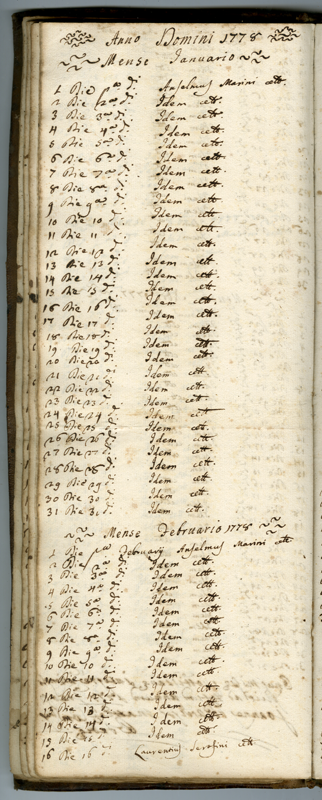 Anno Domini 1778
Mense Januario
1 Die pᵃ dº. Anselmus Marini cett.
2 Die 2ᵃ dº. Idem cett.
3 Die 3ᵃ dº. Idem cett.
4 Die 4ᵃ dº. Idem cett.
5 Die 5ᵃ dº. Idem cett.
6 Die 6ᵃ dº. Idem cett.
7 Die 7ᵃ dº. Idem cett.
8 Die 8ᵃ dº. Idem cett.
9 Die 9ᵃ dº. Idem cett.
10 Die 10 dº. Idem cett.
11 Die 11 dº. Idem cett.
12 Die 12 dº. Idem cett.
13 Die 13 dº. Idem cett.
14 Die 14 dº. Idem cett.
15 Die 15 dº. Idem cett.
16 Die 16 dº. Idem cett.
17 Die 17 dº. Idem cett.
18 Die 18 dº. Idem cett.
19 Die 19 dº. Idem cett.
20 Die 20 dº. Idem cett.
21 Die 21 dº. Idem cett.
22 Die 22 dº. Idem cett.
23 Die 23 dº. Idem cett.
24 Die 24 dº. Idem cett.
25 Die 25 dº. Idem cett.
26 Die 26 dº. Idem cett.
27 Die 27 dº. Idem cett.
28 Die 28 dº. Idem cett.
29 Die 29 dº. Idem cett.
30 Die 30 dº. Idem cett.
31 Die 31 dº. Idem cett.
Mense Februario 1778
1 Die pᵃ Februarij Anselmus Marini cett.
2 Die 2ᵃ dº. Idem cett.
3 Die 3ᵃ dº. Idem cett.
4 Die 4ᵃ dº. Idem cett.
5 Die 5ᵃ dº. Idem cett.
6 Die 6ᵃ dº. Idem cett.
7 Die 7ᵃ dº. Idem cett.
8 Die 8ᵃ dº. Idem cett.
9 Die 9ᵃ dº. Idem cett.
10 Die 10 dº. Idem cett.
11 Die 11 dº. Idem cett.
12 Die 12 dº. Idem cett.
13 Die 13 dº. Idem cett.
14 Die 14 dº. Idem cett.
15 Die 15 dº. Idem cett.
16 Die 16 dº. Laurentius Serafini cett.